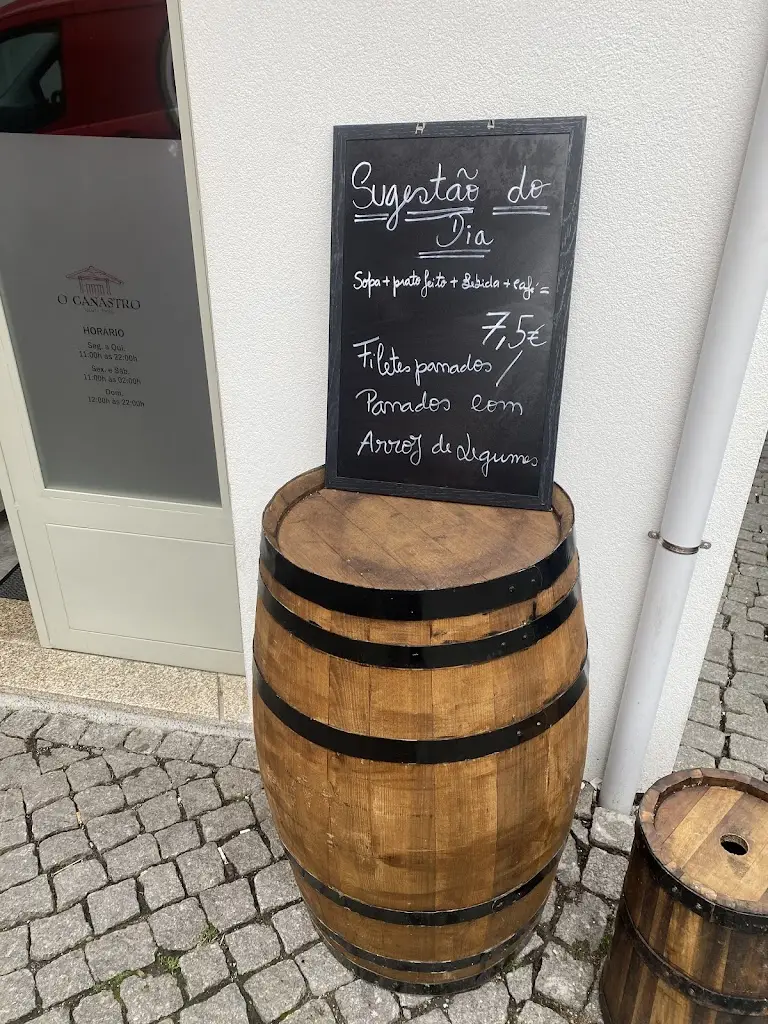 Sugestão do
Dia
Sopa + prato feito + Bebida + café =
7,5€
Filetes panados /
Panados com
Arroz de Legumes
O CANASTRO
HORÁRIO
Seg. a Qui.
11:00h às 22:00h
Sex. e Sáb.
11:00h às 02:00h
Dom.
12:00h às 22:00h